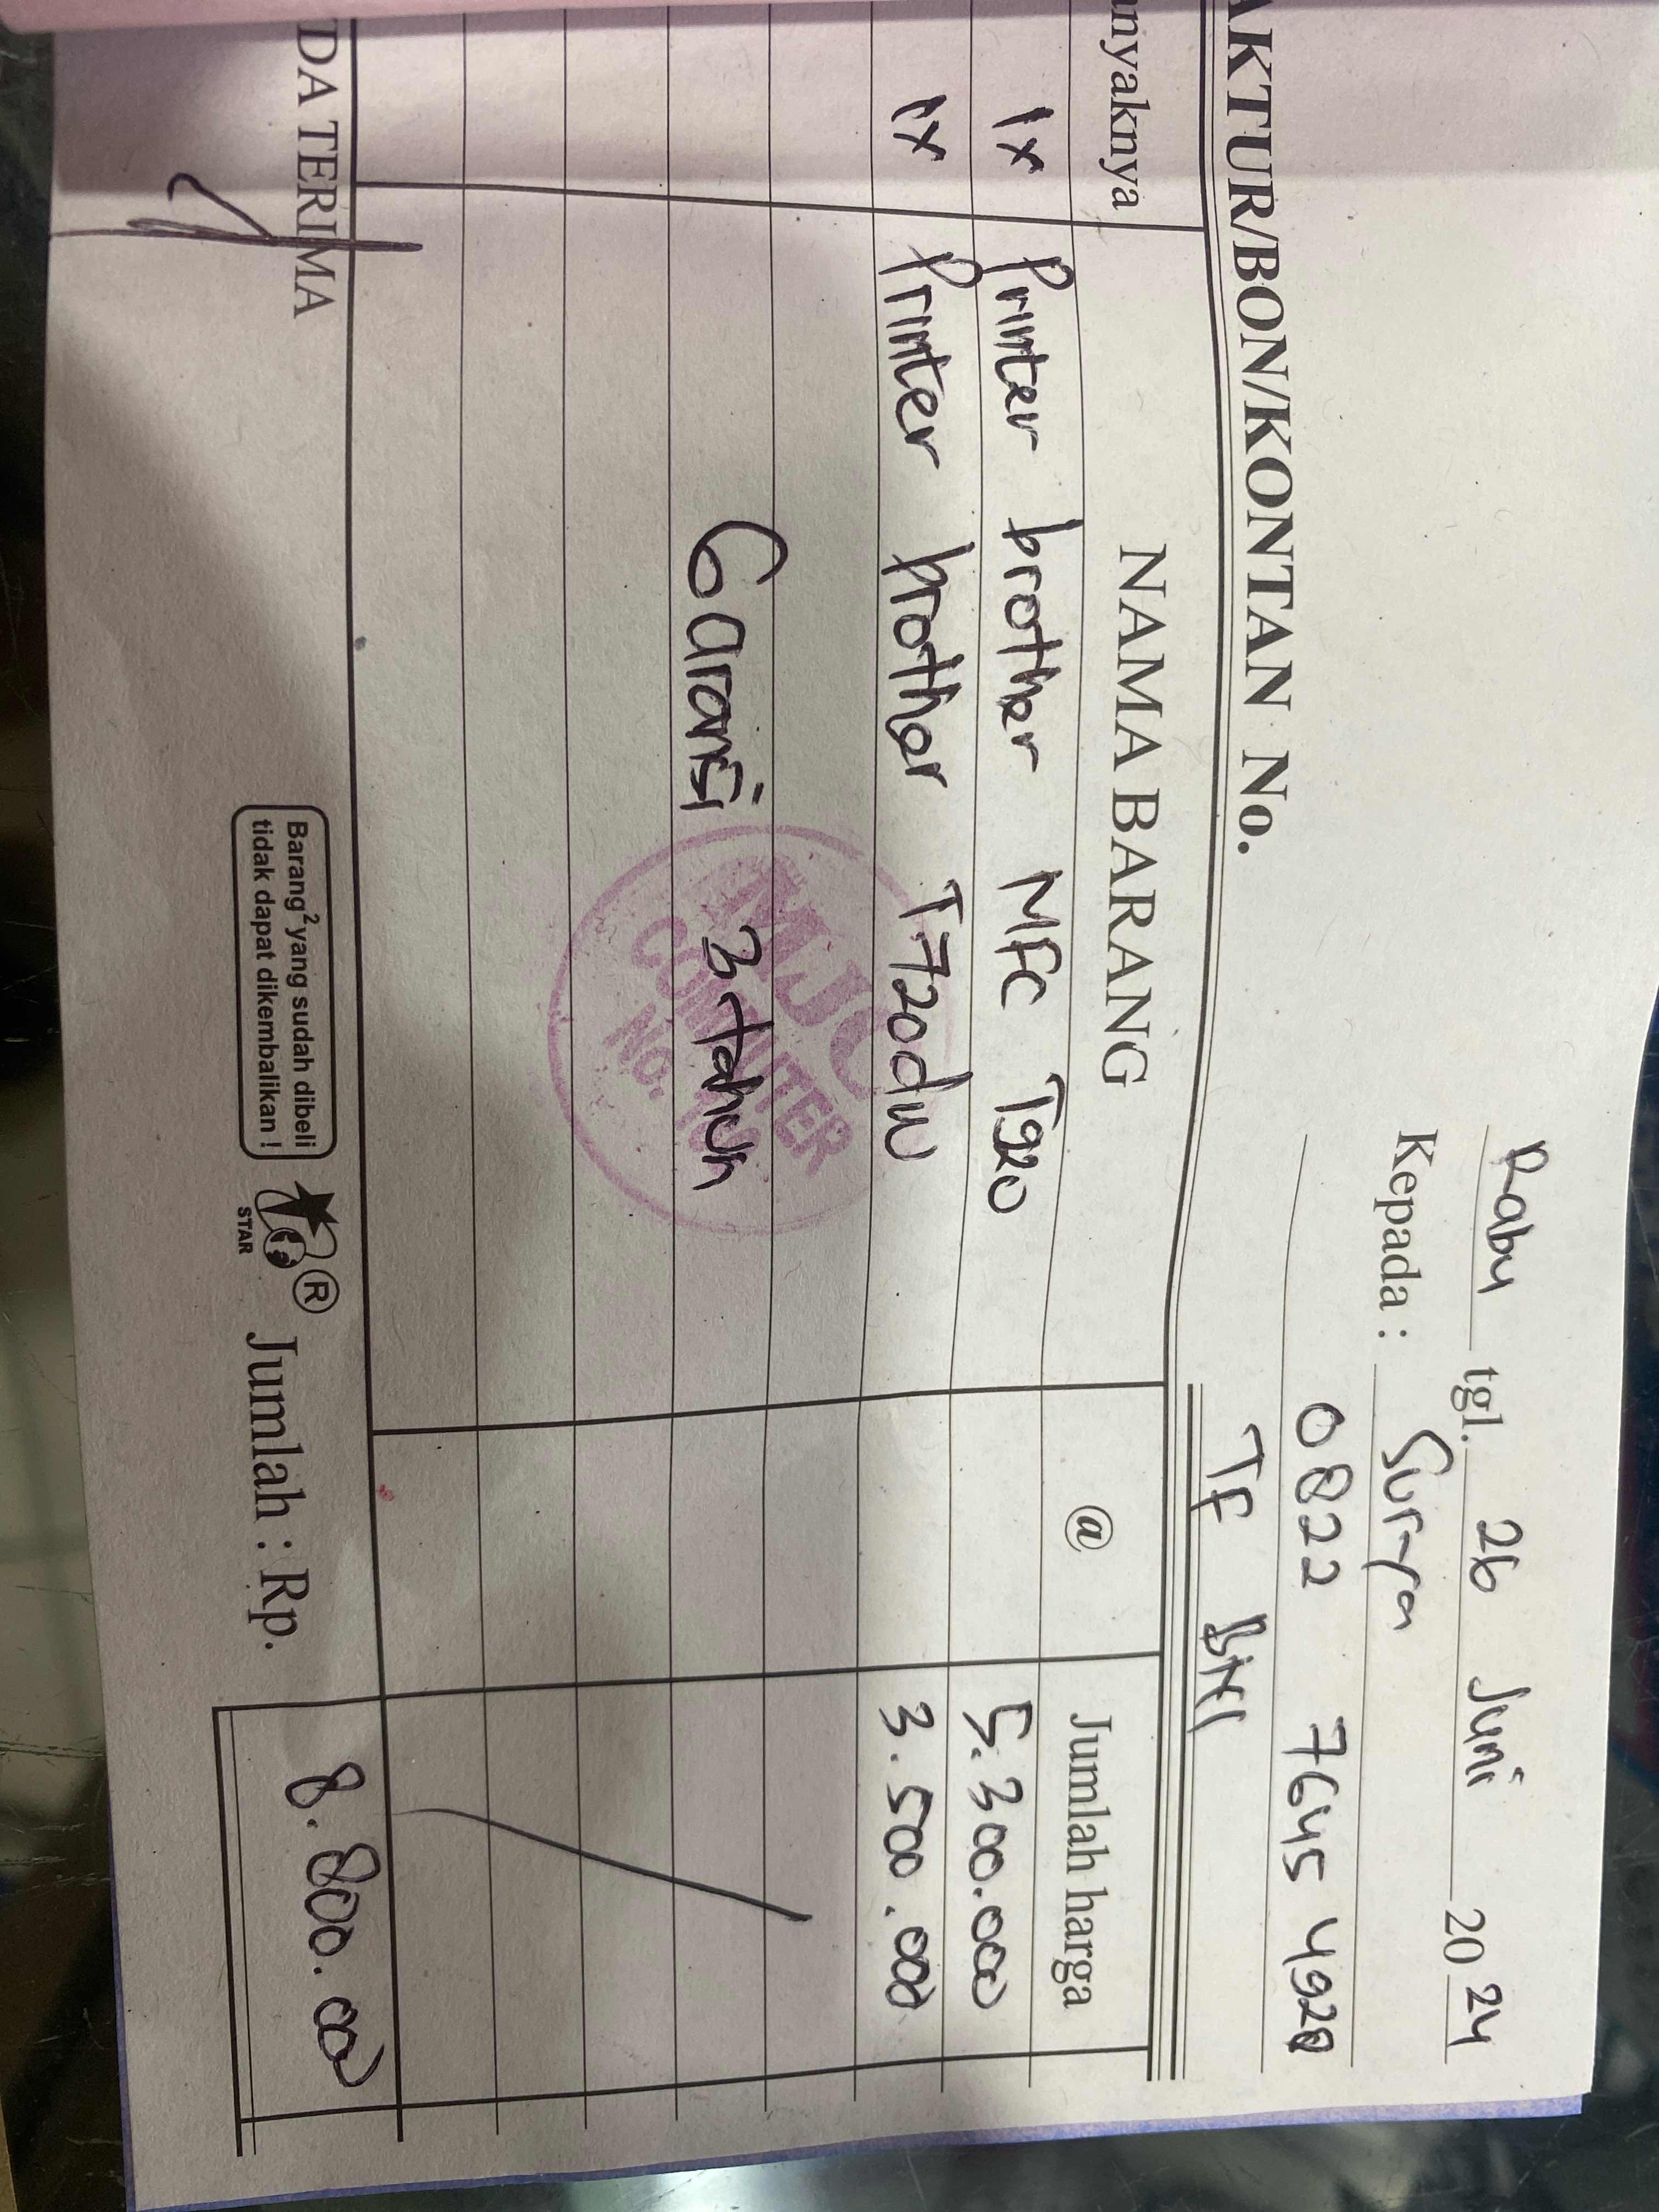 Rabu tgl. 26 Juni 2024
Kepada : Surya
0822 7645 4928
AKTUR/BON/KONTAN No. TF BNI
nyaknya NAMA BARANG @ Jumlah harga
1x Printer brother MFC T920 5.300.000
1x Printer brother T720dw 3.500.000
Garansi 3 tahun
MJC
COMPUTER
No.
DA TERIMA
Barang² yang sudah dibeli
tidak dapat dikembalikan !
STAR
®
Jumlah : Rp. 8.800.000